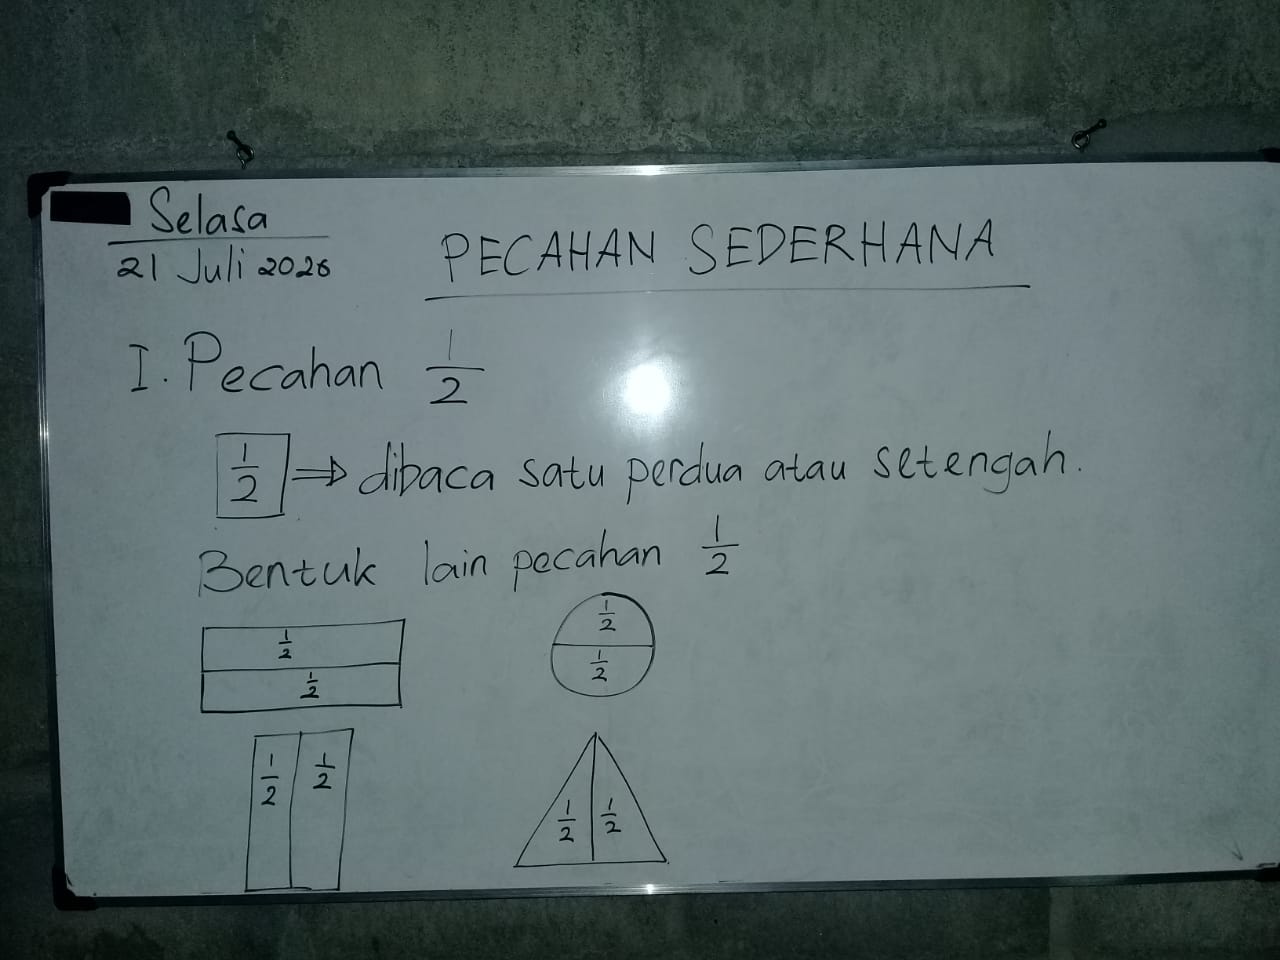 Selasa
21 Juli 2026
PECAHAN SEDERHANA
I. Pecahan 1/2
1/2 ⇒ dibaca satu perdua atau setengah.
Bentuk lain pecahan 1/2
1/2
1/2
1/2
1/2
1/2 1/2
1/2 1/2